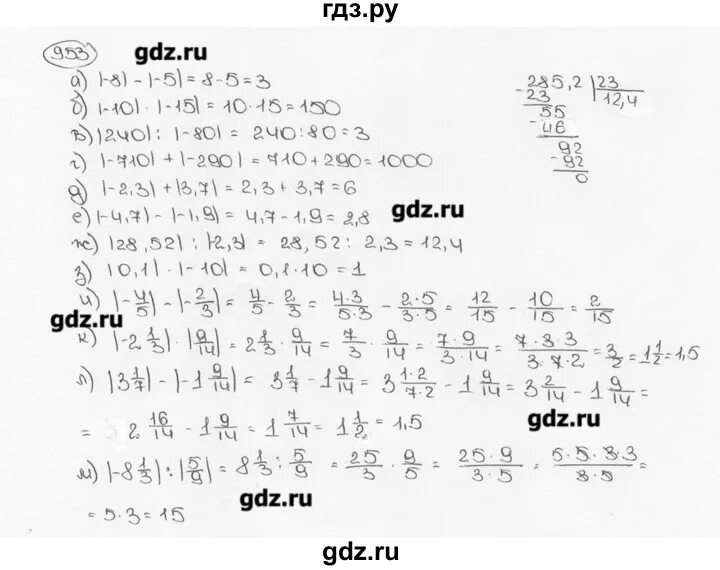 гдз.ру
953
gdz.ru
а) |-8| - |-5| = 8 - 5 = 3
б) |-10| · |-15| = 10 · 15 = 150
в) |240| : |-80| = 240 : 80 = 3
г) |-710| + |-290| = 710 + 290 = 1000
д) |-2,3| + |3,7| = 2,3 + 3,7 = 6
е) |-4,7| - |-1,9| = 4,7 - 1,9 = 2,8
gdz.ru
ж) |28,52| : |-2,3| = 28,52 : 2,3 = 12,4
з) |0,1| · |-10| = 0,1 · 10 = 1
и) |-4/5| - |-2/3| = 4/5 - 2/3 = 4·3/5·3 - 2·5/3·5 = 12/15 - 10/15 = 2/15
gdz.ru
к) |-2 1/3| · |9/14| = 2 1/3 · 9/14 = 7/3 · 9/14 = 7·9/3·14 = 7·3·3/3·7·2 = 3/2 = 1 1/2 = 1,5
л) |3 1/7| - |-1 9/14| = 3 1/7 - 1 9/14 = 3 1·2/7·2 - 1 9/14 = 3 2/14 - 1 9/14 =
= 2 16/14 - 1 9/14 = 1 7/14 = 1 1/2 = 1,5
gdz.ru
м) |-8 1/3| : |5/9| = 8 1/3 : 5/9 = 25/3 · 9/5 = 25·9/3·5 = 5·5·3·3/3·5 =
gdz.ru
= 5·3 = 15
285,2 | 23
- 23
12,4
55
- 46
92
- 92
0
gdz.ru